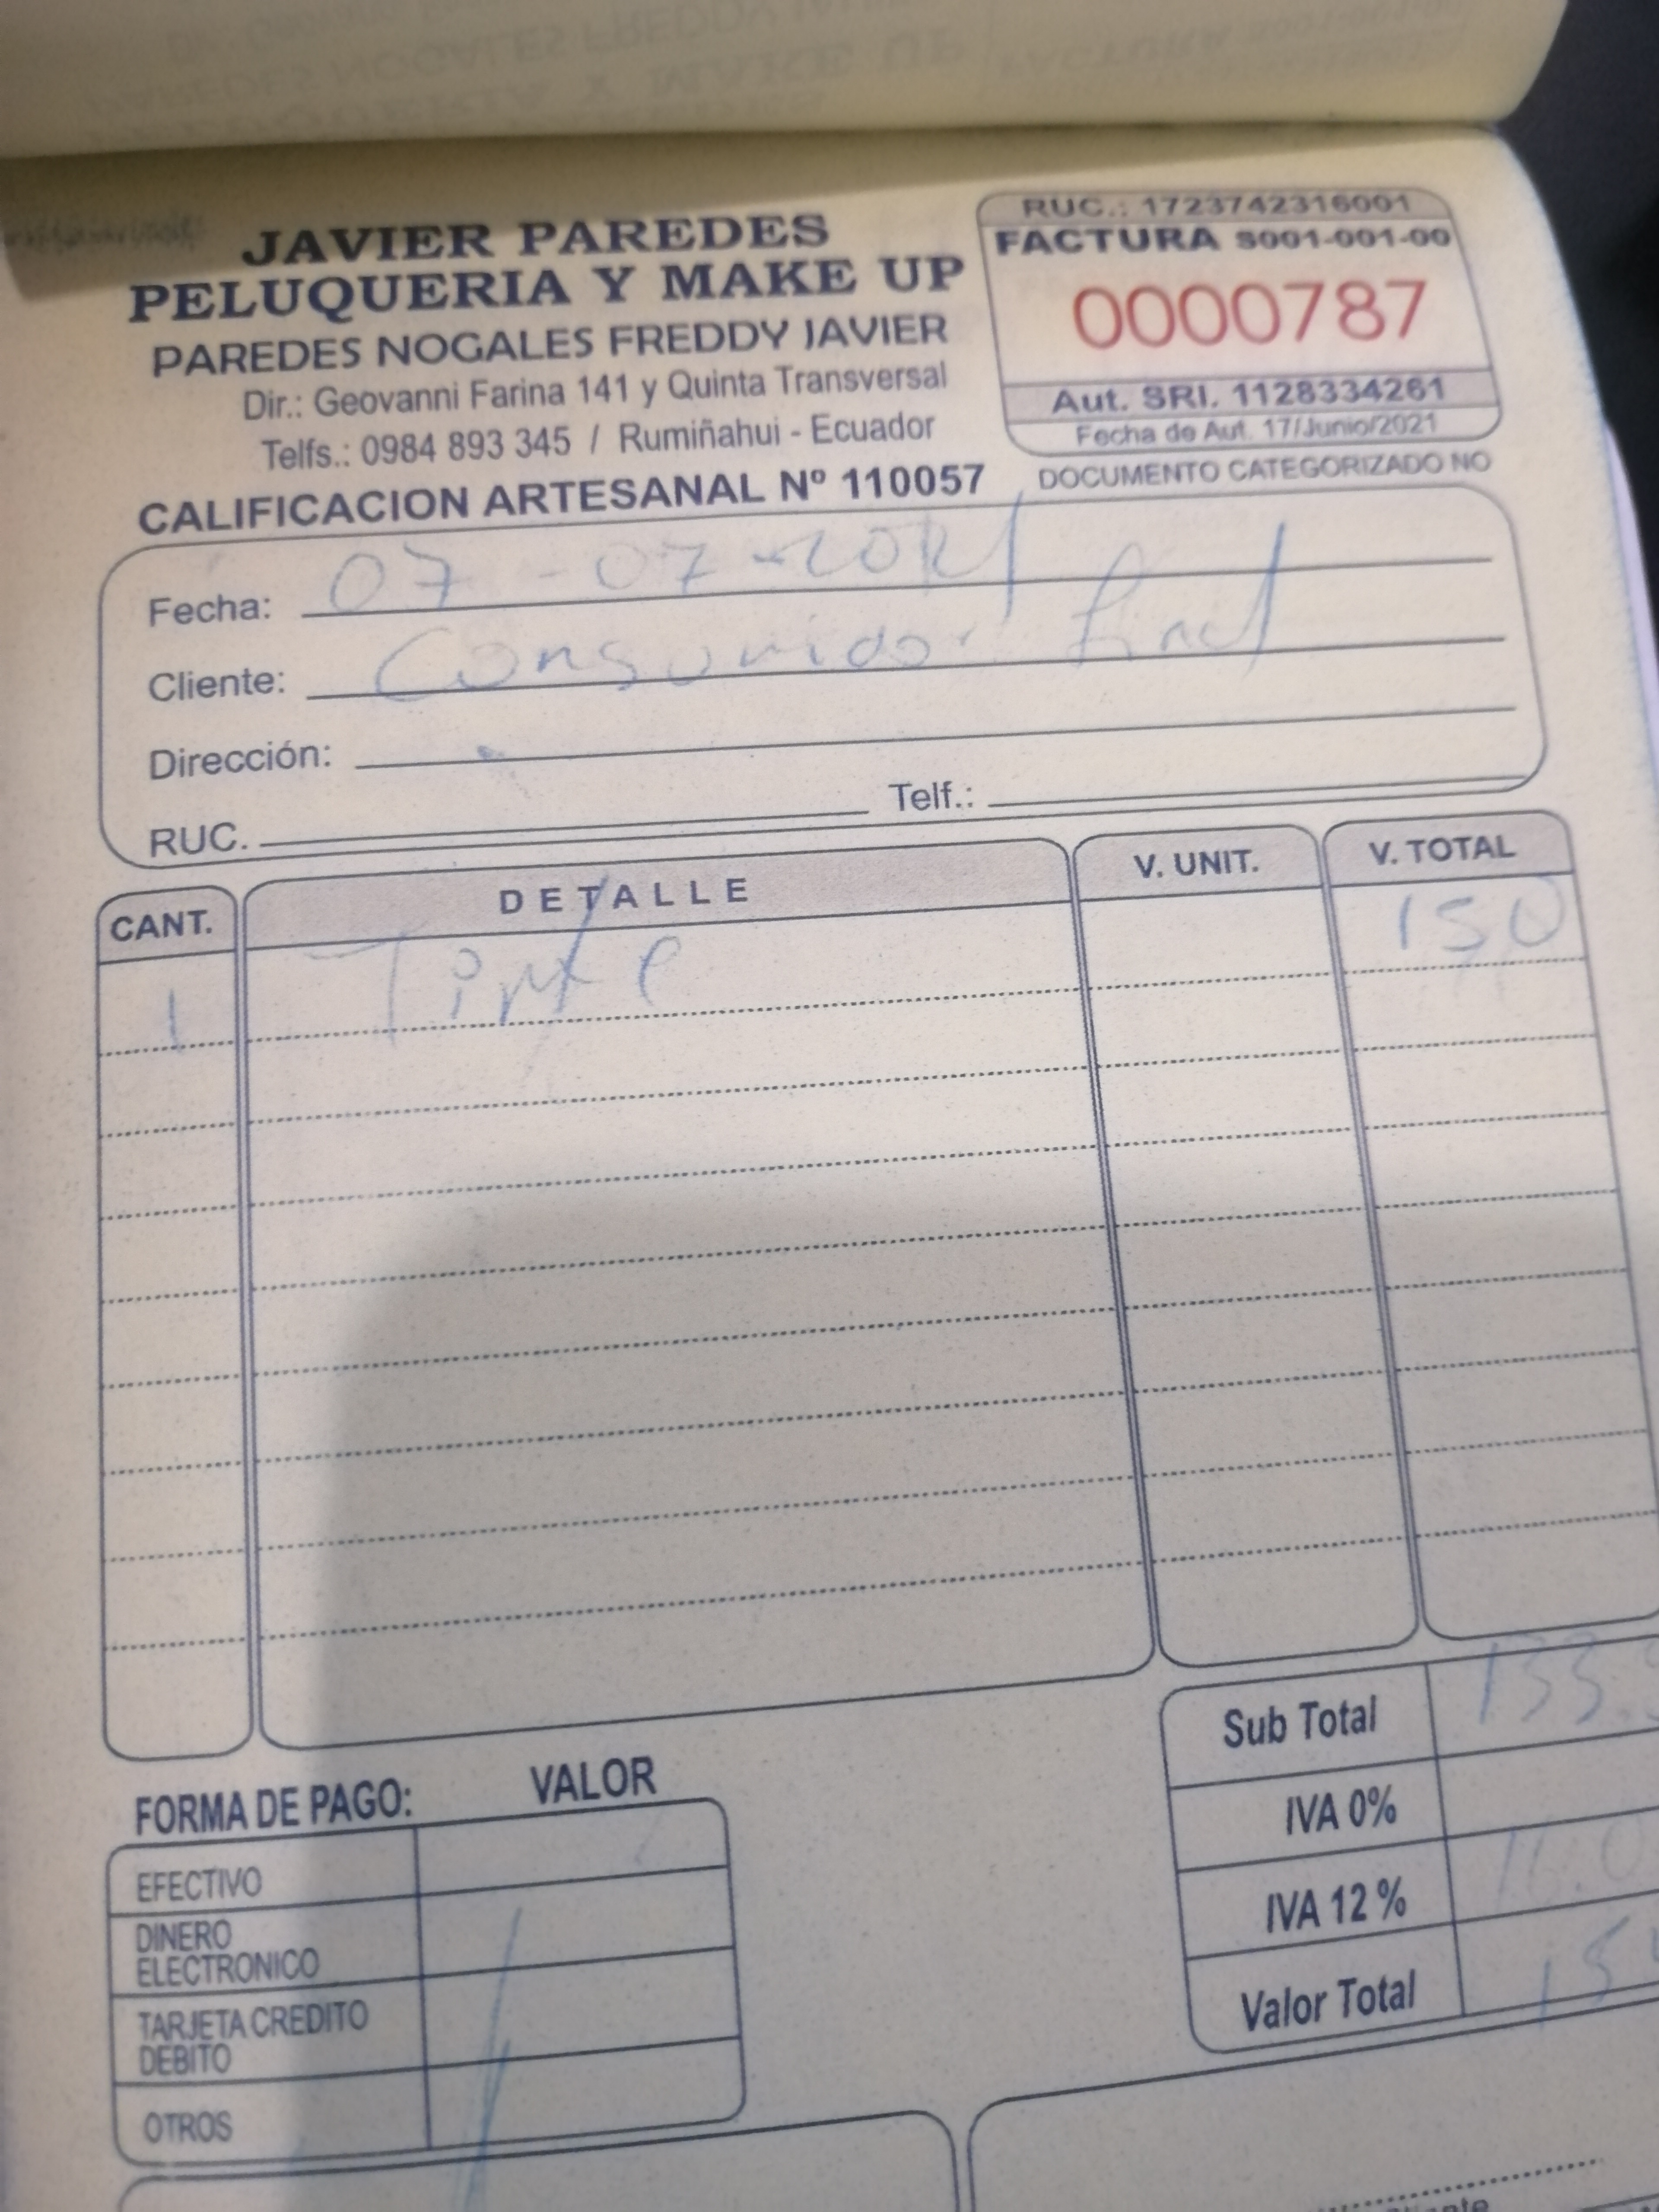 JAVIER PAREDES
PELUQUERIA Y MAKE UP
PAREDES NOGALES FREDDY JAVIER
Dir.: Geovanni Farina 141 y Quinta Transversal
Telfs.: 0984 893 345 / Rumiñahui - Ecuador
CALIFICACION ARTESANAL Nº 110057
RUC.: 1723742316001
FACTURA S001-001-00
0000787
Aut. SRI. 1128334261
Fecha de Aut. 17/Junio/2021
DOCUMENTO CATEGORIZADO NO
Fecha: 07-07-2021
Cliente: Consumidor final
Dirección:
RUC. Telf.:
CANT. DETALLE V. UNIT. V. TOTAL
1 Tinte 150
Sub Total 133.
IVA 0%
IVA 12 %
Valor Total
FORMA DE PAGO: VALOR
EFECTIVO
DINERO
ELECTRONICO
TARJETA CREDITO
DEBITO
OTROS